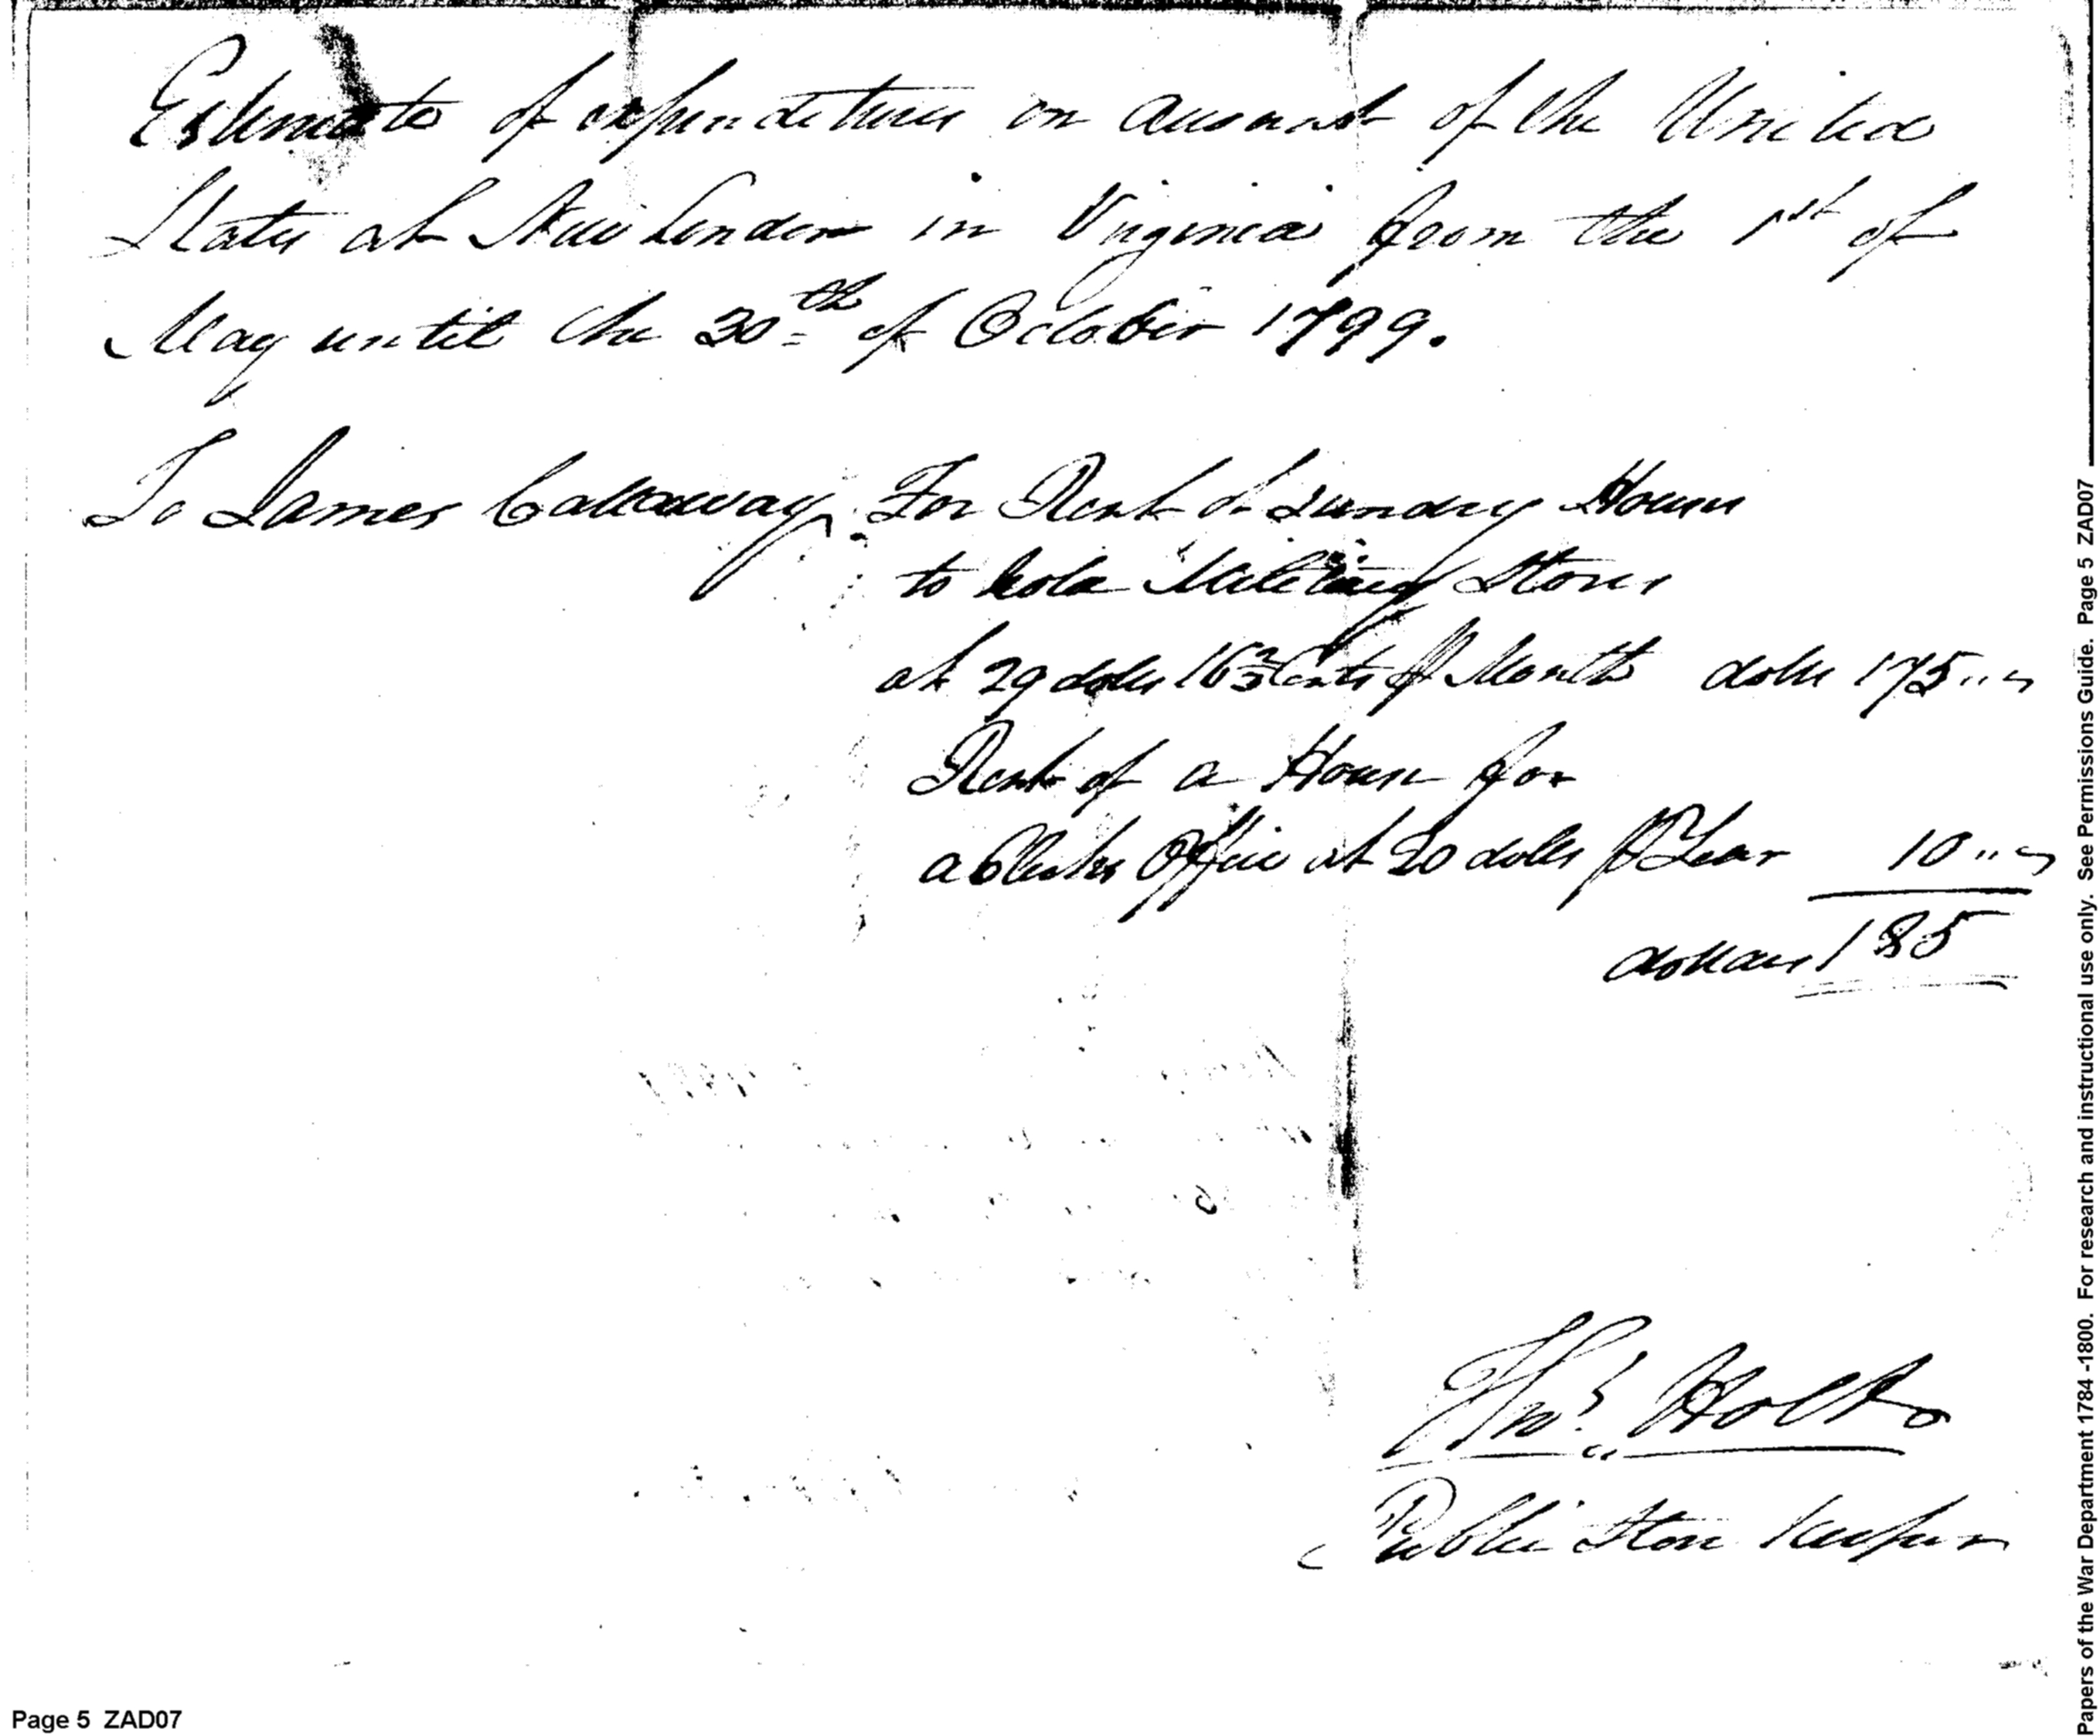 Estimate of expenditures on account of the United
States at New London in Virginia from the 1st of
May until the 30th of October 1799.
To James Callaway, For Rent of Sundry Houses
to hold Military Stores
at 29 dolls 16 2/3 Cents ⅌ Month dolls 175 "
Rent of a House for
a Clerks Office at 20 dolls ⅌ Year 10 "
dollars 185
Thos. Holt
Public Store keeper
Page 5 ZAD07
Papers of the War Department 1784 -1800. For research and instructional use only. See Permissions Guide. Page 5 ZAD07